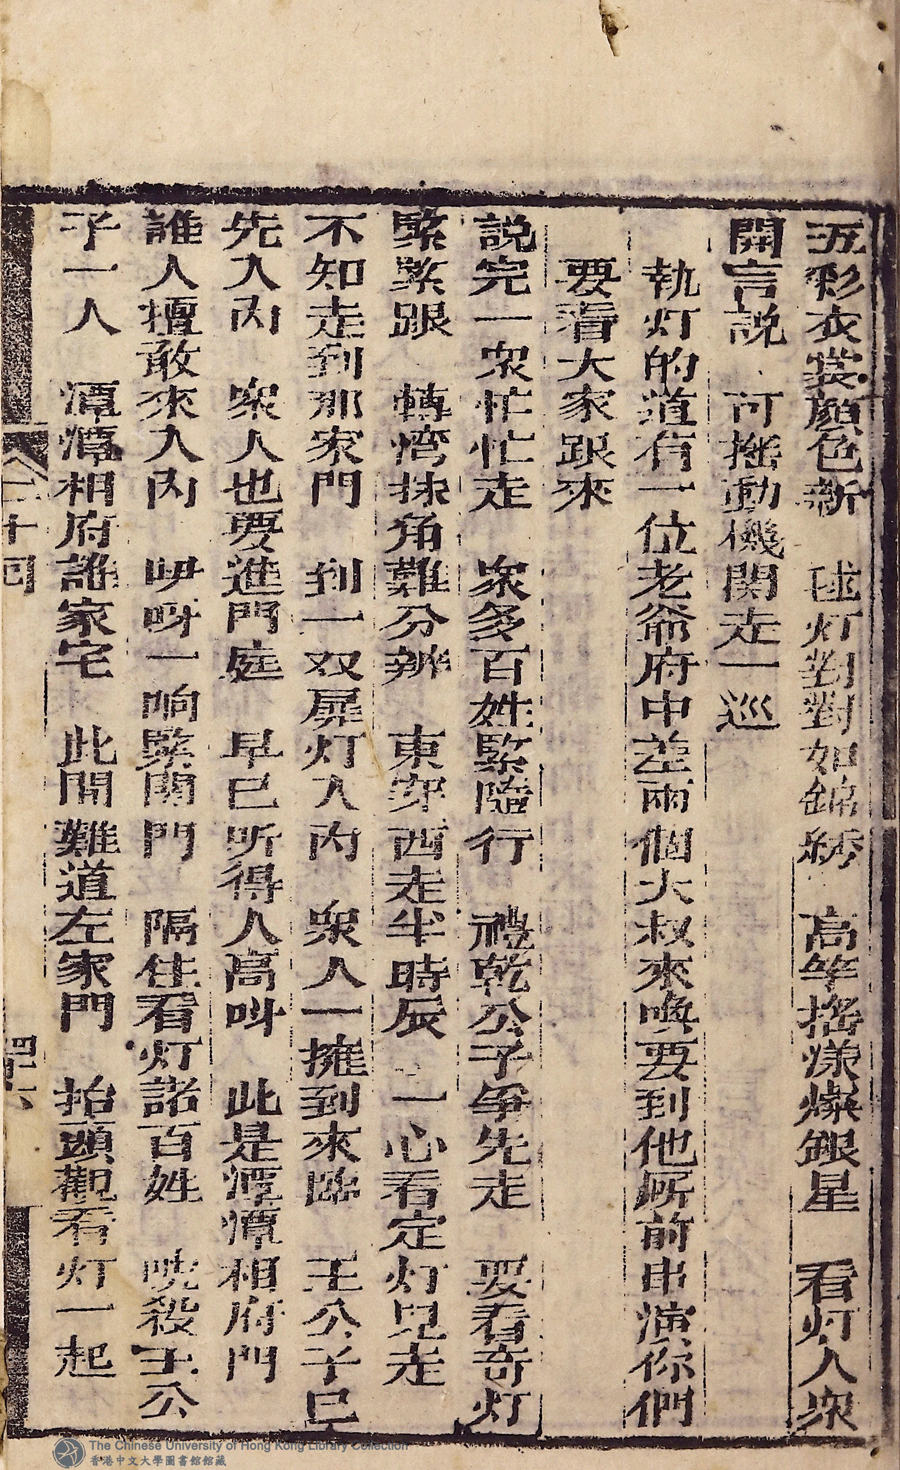 五彩衣裳顔色新　毬灯對對如錦綉　高竿搖漾燦銀星　看灯人衆
開言説　可摇動機関走一巡
執灯的道有一位老爺府中差兩個大叔來喚要到他厛前串演你們
要看大家跟來
説完一衆忙忙走　衆多百姓緊隨行　禮乾公子争先走　要看奇灯
緊緊跟　轉湾抹角難分辨　東穿西走半時辰　一心看定灯兒走
不知走到那家門　到一双扉灯入内　衆人一擁到來臨　王公子已
先入内　衆人也要進門庭　早已听得人高叫　此是潭潭相府門
誰人擅敢來入内　呀一响緊関門　隔住看灯諸百姓　唬殺王公
子一人　潭潭相府誰家宅　此間難道左家門　抬頭觀看灯一起
二十回
四十六
The Chinese University of Hong Kong Library Collection
香港中文大學圖書館館藏